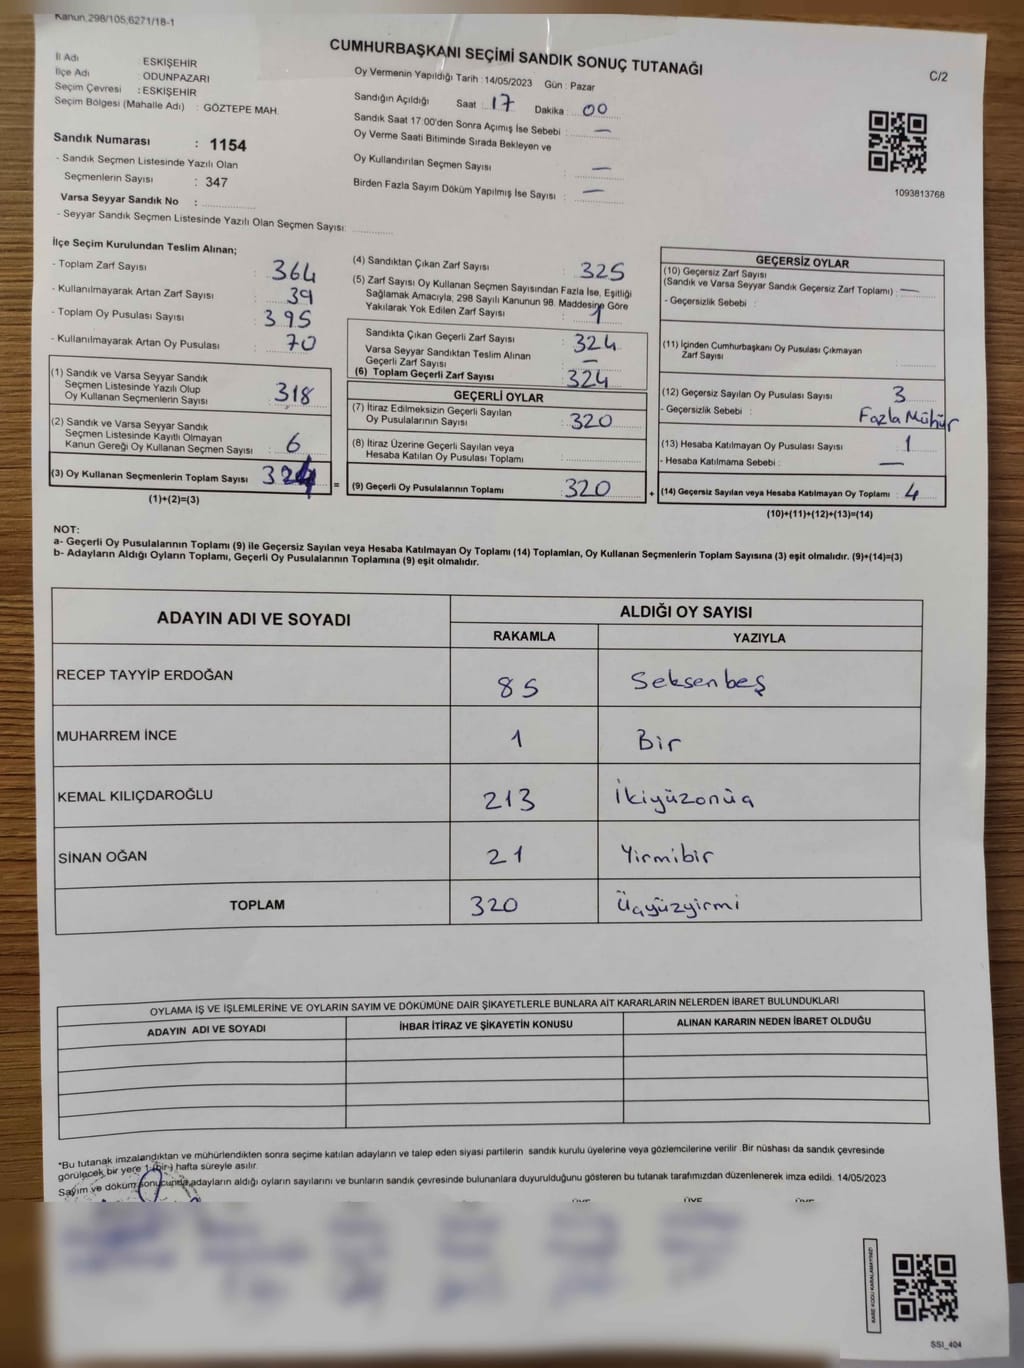 Kanun;298/105;6271/18-1
CUMHURBAŞKANI SEÇİMİ SANDIK SONUÇ TUTANAĞI
C/2
İl Adı ESKİŞEHİR
İlçe Adı ODUNPAZARI
Seçim Çevresi : ESKİŞEHİR
Seçim Bölgesi (Mahalle Adı) : GÖZTEPE MAH.
Oy Vermenin Yapıldığı Tarih : 14/05/2023 Gün : Pazar
Sandığın Açıldığı Saat : 17 Dakika : 00
Sandık Saat 17:00'den Sonra Açımış İse Sebebi : —
Oy Verme Saati Bitiminde Sırada Bekleyen ve
Oy Kullandırılan Seçmen Sayısı : —
Birden Fazla Sayım Döküm Yapılmış İse Sayısı : —
1093813768
Sandık Numarası : 1154
- Sandık Seçmen Listesinde Yazılı Olan
Seçmenlerin Sayısı : 347
Varsa Seyyar Sandık No :
- Seyyar Sandık Seçmen Listesinde Yazılı Olan Seçmen Sayısı:
İlçe Seçim Kurulundan Teslim Alınan;
- Toplam Zarf Sayısı 364
- Kullanılmayarak Artan Zarf Sayısı 39
- Toplam Oy Pusulası Sayısı 395
- Kullanılmayarak Artan Oy Pusulası 70
(1) Sandık ve Varsa Seyyar Sandık
Seçmen Listesinde Yazılı Olup
Oy Kullanan Seçmenlerin Sayısı 318
(2) Sandık ve Varsa Seyyar Sandık
Seçmen Listesinde Kayıtlı Olmayan
Kanun Gereği Oy Kullanan Seçmen Sayısı 6
(3) Oy Kullanan Seçmenlerin Toplam Sayısı 324
(1)+(2)=(3)
(4) Sandıktan Çıkan Zarf Sayısı : 325
(5) Zarf Sayısı Oy Kullanan Seçmen Sayısından Fazla İse, Eşitliği
Sağlamak Amacıyla; 298 Sayılı Kanunun 98. Maddesine Göre
Yakılarak Yok Edilen Zarf Sayısı : 1
Sandıkta Çıkan Geçerli Zarf Sayısı : 324
Varsa Seyyar Sandıktan Teslim Alınan
Geçerli Zarf Sayısı : —
(6) Toplam Geçerli Zarf Sayısı 324
GEÇERLİ OYLAR
(7) İtiraz Edilmeksizin Geçerli Sayılan
Oy Pusulalarının Sayısı : 320
(8) İtiraz Üzerine Geçerli Sayılan veya
Hesaba Katılan Oy Pusulası Toplamı :
= (9) Geçerli Oy Pusulalarının Toplamı 320 +
GEÇERSİZ OYLAR
(10) Geçersiz Zarf Sayısı
(Sandık ve Varsa Seyyar Sandık Geçersiz Zarf Toplamı) : —
- Geçersizlik Sebebi :
(11) İçinden Cumhurbaşkanı Oy Pusulası Çıkmayan
Zarf Sayısı :
(12) Geçersiz Sayılan Oy Pusulası Sayısı : 3
- Geçersizlik Sebebi : Fazla Mühür
(13) Hesaba Katılmayan Oy Pusulası Sayısı : 1
- Hesaba Katılmama Sebebi : —
(14) Geçersiz Sayılan veya Hesaba Katılmayan Oy Toplamı : 4
(10)+(11)+(12)+(13)=(14)
NOT:
a- Geçerli Oy Pusulalarının Toplamı (9) ile Geçersiz Sayılan veya Hesaba Katılmayan Oy Toplamı (14) Toplamları, Oy Kullanan Seçmenlerin Toplam Sayısına (3) eşit olmalıdır. (9)+(14)=(3)
b- Adayların Aldığı Oyların Toplamı, Geçerli Oy Pusulalarının Toplamına (9) eşit olmalıdır.
ADAYIN ADI VE SOYADI ALDIĞI OY SAYISI
RAKAMLA YAZIYLA
RECEP TAYYİP ERDOĞAN 85 Seksenbeş
MUHARREM İNCE 1 Bir
KEMAL KILIÇDAROĞLU 213 İkiyüzonüç
SİNAN OĞAN 21 Yirmibir
TOPLAM 320 Üçyüzyirmi
OYLAMA İŞ VE İŞLEMLERİNE VE OYLARIN SAYIM VE DÖKÜMÜNE DAİR ŞİKAYETLERLE BUNLARA AİT KARARLARIN NELERDEN İBARET BULUNDUKLARI
ADAYIN ADI VE SOYADI İHBAR İTİRAZ VE ŞİKAYETİN KONUSU ALINAN KARARIN NEDEN İBARET OLDUĞU
*Bu tutanak imzalandıktan ve mühürlendikten sonra seçime katılan adayların ve talep eden siyasi partilerin sandık kurulu üyelerine veya gözlemcilerine verilir. Bir nüshası da sandık çevresinde
görülecek bir yere 1 (bir) hafta süreyle asılır.
Sayım ve döküm sonucunda adayların aldığı oyların sayılarını ve bunların sandık çevresinde bulunanlara duyurulduğunu gösteren bu tutanak tarafımızdan düzenlenerek imza edildi. 14/05/2023
ÜYE ÜYE ÜYE
KARE KODU KARALAMAYINIZ!
SSI_404